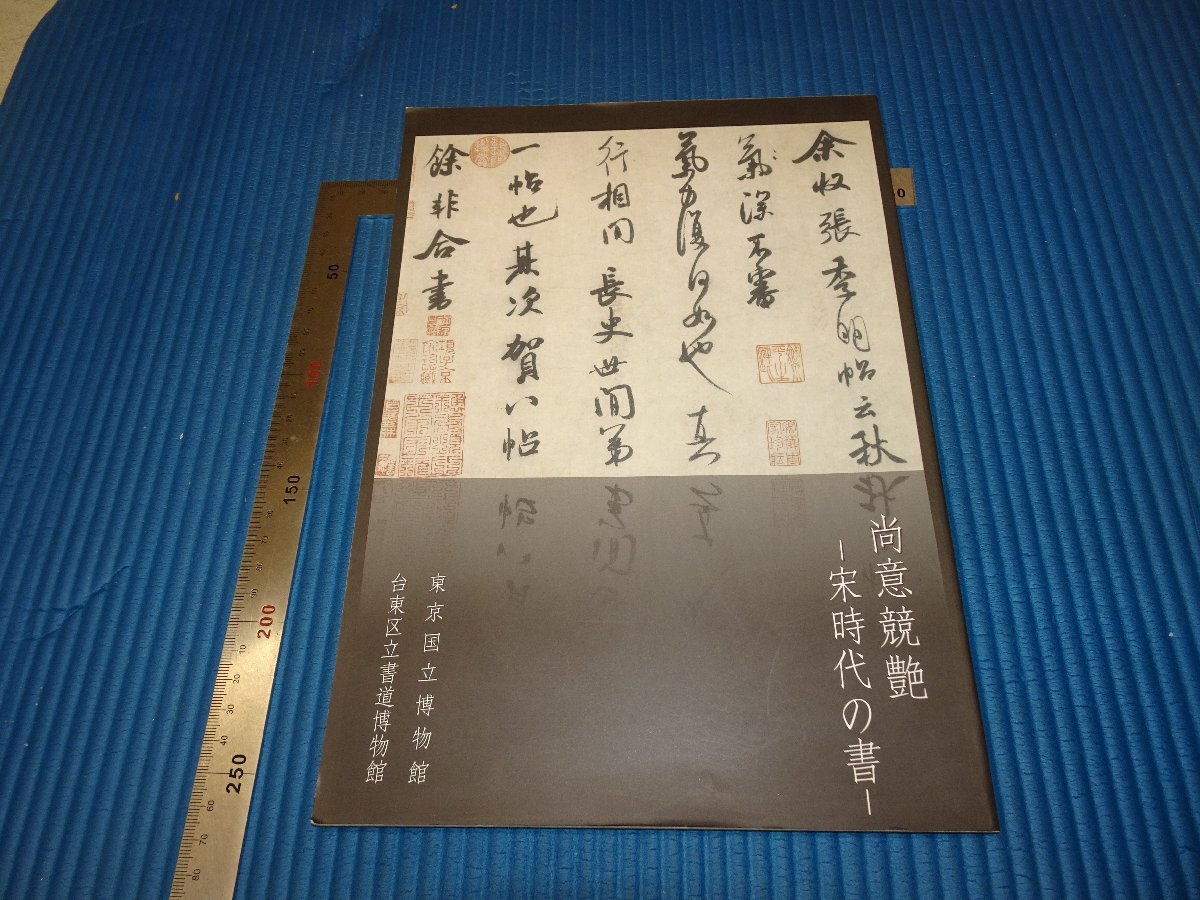 余收張季明帖云秋
氣深不審
氣力復何如也真
行相間長史世間第
一帖也其次賀八帖
餘非合書
尚意競艶
―宋時代の書―
東京国立博物館
台東区立書道博物館
0
50
100
150
200
250